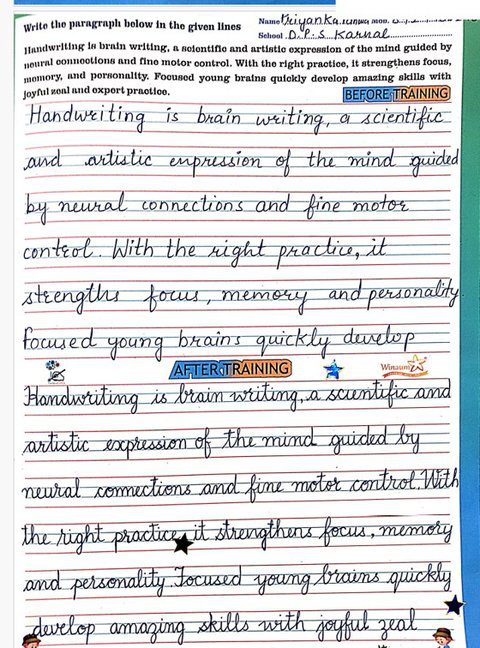 Write the paragraph below in the given lines
Name Priyanka
School D.P.S Karnal
Handwriting is brain writing, a scientific and artistic expression of the mind guided by
neural connections and fine motor control. With the right practice, it strengthens focus,
memory, and personality. Focused young brains quickly develop amazing skills with
joyful zeal and expert practice.
BEFORE TRAINING
Handwriting is brain writing, a scientific
and artistic enpression of the mind guided
by neural connections and fine motor
control. With the right practice, it
strengths focus, memory and personality.
Focused young brains quickly develop
AFTER TRAINING
Winaum
Handwriting is brain writing, a scientific and
artistic expression of the mind guided by
neural connections and fine motor control. With
the right practice, it strengthens focus, memory
and personality. Focused young brains quickly
develop amazing skills with joyful zeal